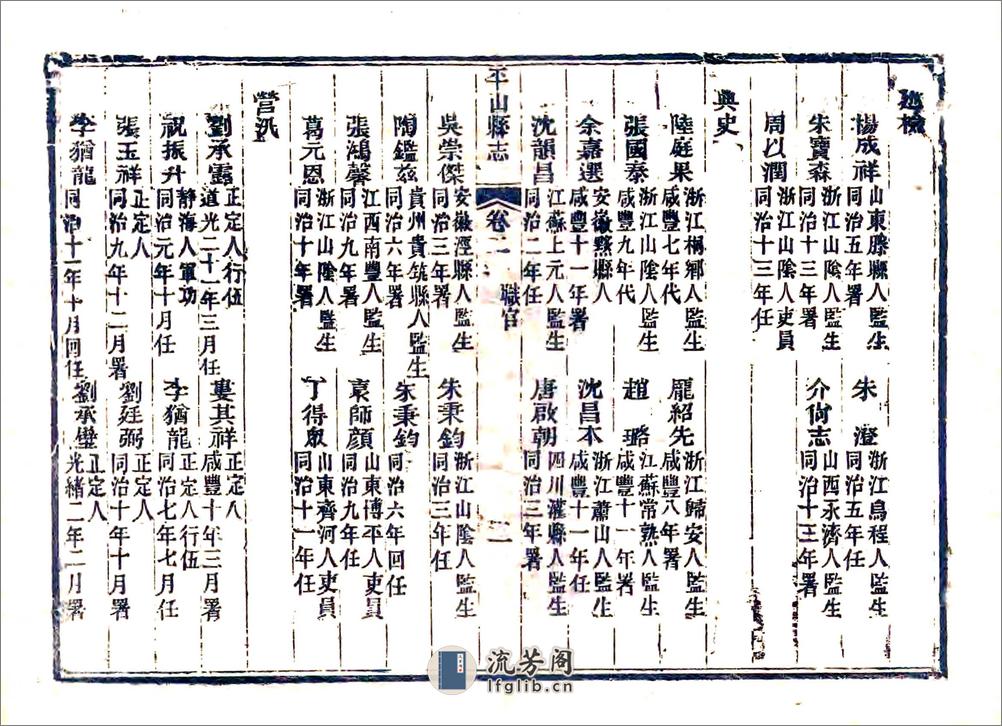 巡檢
楊成祥 山東滕縣人監生 同治五年署 朱澄 浙江烏程人監生 同治五年任
朱寶森 浙江山陰人監生 同治十三年署 介尙志 山西永濟人監生 同治十三年署
周以潤 浙江山陰人吏員 同治十三年任
典史
陸庭果 浙江桐鄉人監生 咸豐七年代 龐紹先 浙江歸安人監生 咸豐八年署
張國泰 浙江山陰人監生 咸豐九年代 趙璐 江蘇常熟人監生 咸豐十一年署
余嘉選 安徽黟縣人 咸豐十一年署 沈昌本 浙江蕭山人監生 咸豐十一年任
沈韻昌 江蘇上元人監生 同治二年任 唐啟朝 四川灌縣人監生 同治三年署
平山縣志 卷二 職官 三
吳崇傑 安徽涇縣人監生 同治三年署 朱秉鈞 浙江山陰人監生 同治三年任
陶鑑茲 貴州貴筑縣人監生 同治六年署 朱秉鈞 同治六年回任
張鴻馨 江西南豐人監生 同治九年署 袁師顔 山東博平人吏員 同治九年任
葛元恩 浙江山陰人監生 同治十年署 丁得眾 山東齊河人吏員 同治十一年任
營汛
劉承露 正定人行伍 道光二十一年三月任 婁其祥 正定人 咸豐十年三月署
祝振升 靜海人軍功 同治元年十月任 李猶龍 正定人行伍 同治七年七月任
張玉祥 正定人 同治九年十二月署 劉廷弼 正定人 同治十年十月署
李猶龍 同治十一年十月回任 劉承璧 正定人 光緒二年二月署
流芳阁
lfglib.cn